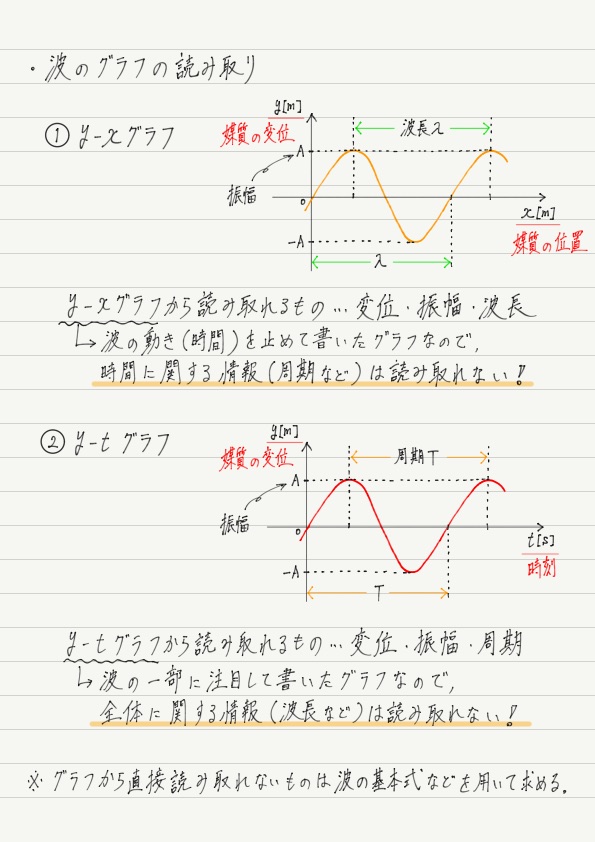 ・波のグラフの読み取り
① y-xグラフ
y[m]
媒質の変位
波長λ
A
振幅
0
x[m]
媒質の位置
-A
λ
y-xグラフから読み取れるもの…変位・振幅・波長
↳波の動き(時間)を止めて書いたグラフなので,
時間に関する情報(周期など)は読み取れない!
② y-tグラフ
y[m]
媒質の変位
周期T
A
振幅
0
t[s]
時刻
-A
T
y-tグラフから読み取れるもの…変位・振幅・周期
↳波の一部に注目して書いたグラフなので,
全体に関する情報(波長など)は読み取れない!
※グラフから直接読み取れないものは波の基本式などを用いて求める.